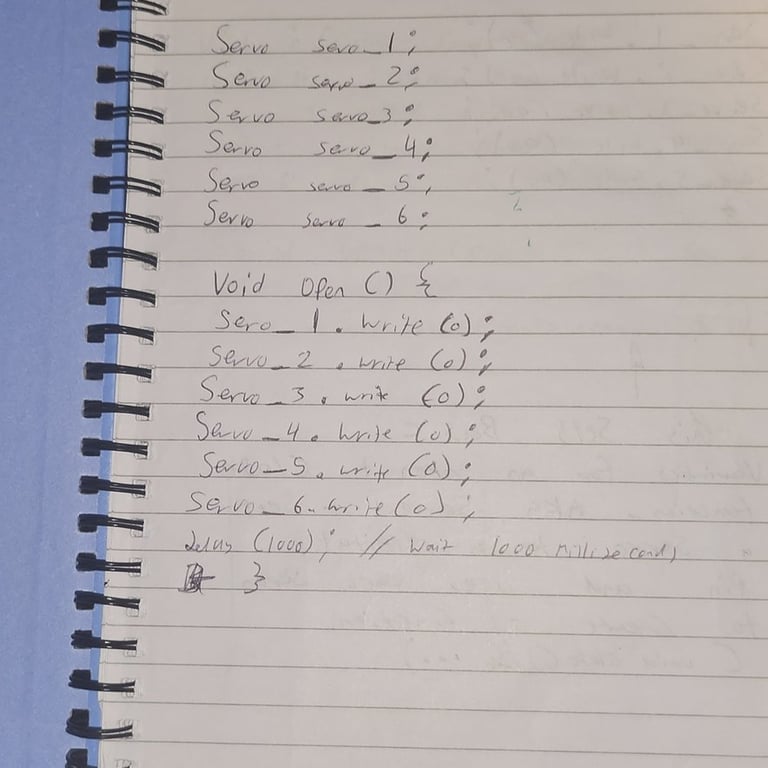 Servo servo_1;
Servo servo_2;
Servo servo_3;
Servo servo_4;
Servo servo_5;
Servo servo_6;
Void Open () {
Sero_1.write (0);
Servo_2.write (0);
Servo_3.write (0);
Servo_4.write (0);
Servo_5.write (0);
Servo_6.write (0);
delay (1000); // wait 1000 milliseconds
}